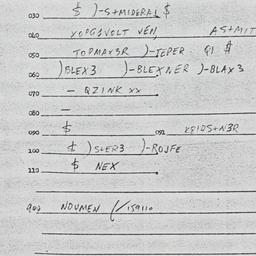 030 $ )-S+MIDERAL $
040 XOPGSVOLT VEN, AS+MIT
050 TOPMAX3R )-IEPER. Q1 $
060 )BLEX3 )-BLEXNER )-BLAX3
070 - QZINK XX
080 -
090 $ 091 XRIDS+N3R
100 $ )SLER3 )-ROJFE
110 $ NEX
900 NOUMEN (/159110